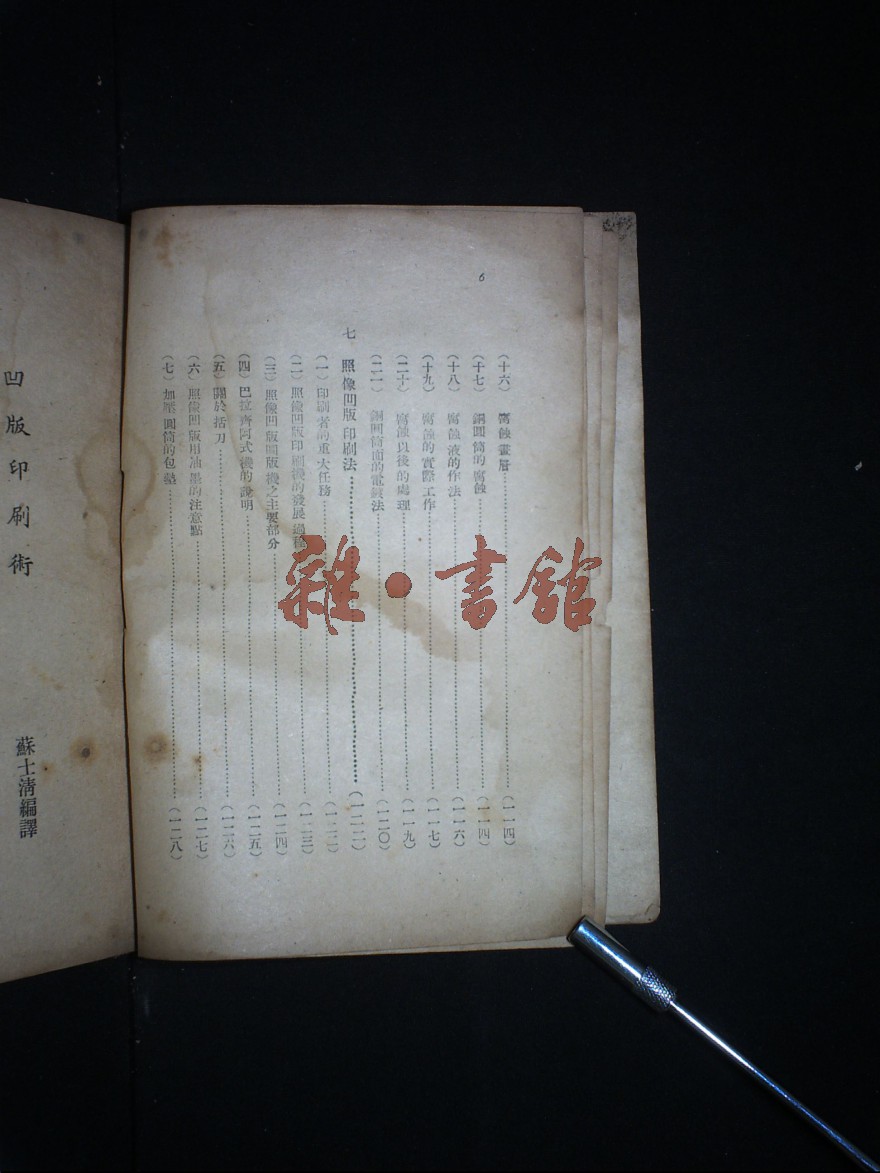 6
(十六) 腐蝕畫層 (一一四)
(十七) 銅圓筒的腐蝕 (一一四)
(十八) 腐蝕液的作法 (一一六)
(十九) 腐蝕的實際工作 (一一七)
(二十) 腐蝕以後的處理 (一一九)
(二一) 銅圓筒面的電鍍法 (一二〇)
七 照像凹版印刷法 (一二二)
(一) 印刷者的重大任務 (一二二)
(二) 照像凹版印刷機的發展過程 (一二三)
(三) 照像凹版圓版機之主要部分 (一二四)
(四) 巴拉齊阿式機的說明 (一二五)
(五) 關於括刀 (一二六)
(六) 照像凹版用油墨的注意點 (一二七)
(七) 加壓圓筒的包墊 (一二八)
凹版印刷術
蘇士清編譯
雜·書館